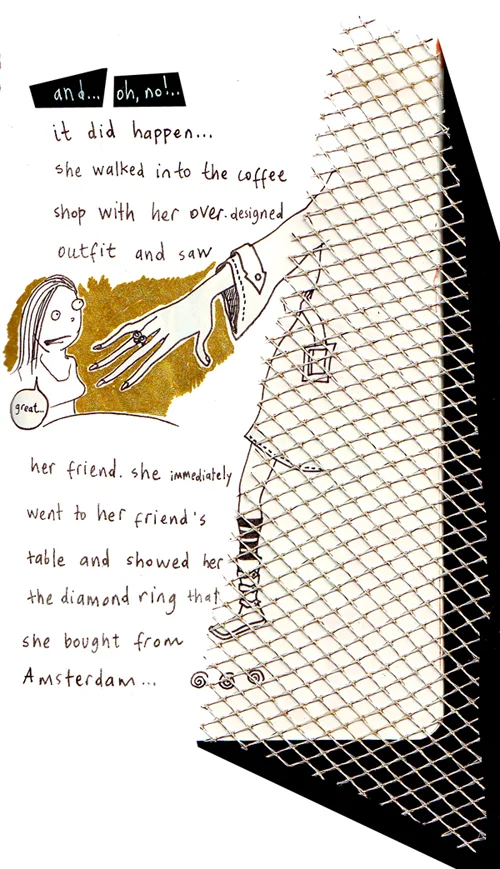 and... oh, no!..
it did happen...
she walked into the coffee
shop with her over-designed
outfit and saw
great...
her friend. she immediately
went to her friend's
table and showed her
the diamond ring that
she bought from
Amsterdam...